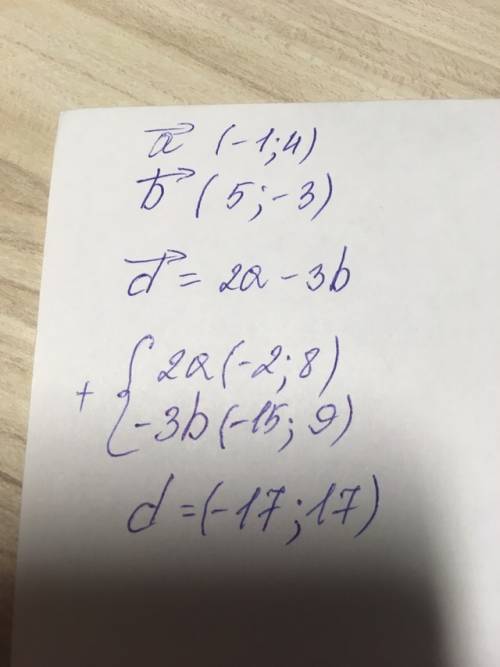 a⃗ (-1;4)
b⃗ (5;-3)
d⃗ = 2a - 3b
+ { 2a(-2;8)
-3b(-15;9)
d=(-17;17)